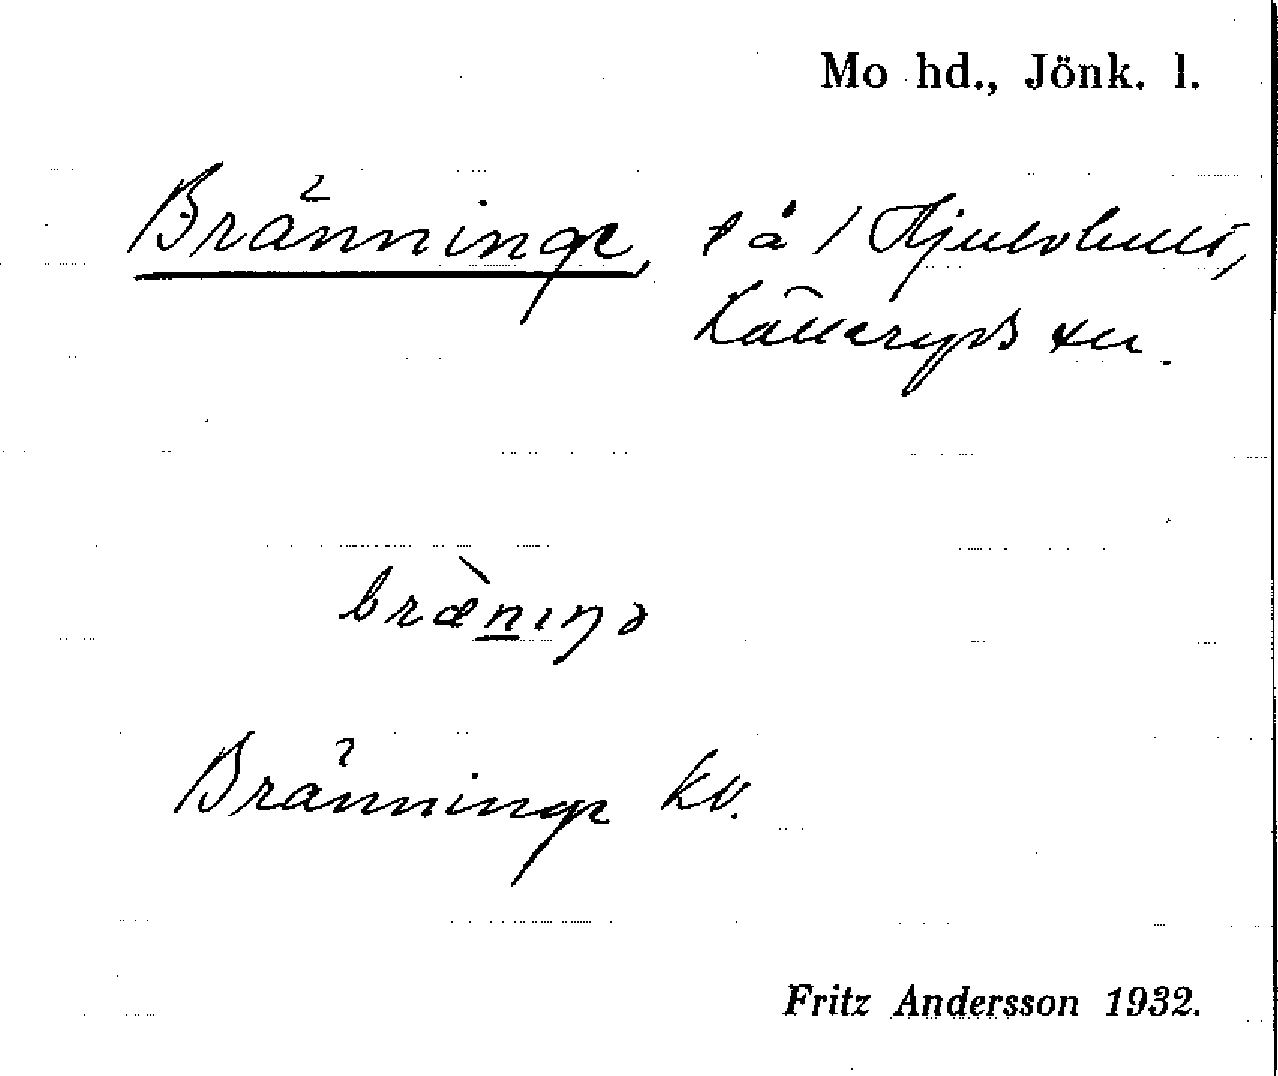 Mo hd., Jönk. l.
Bränninge, på 1 Hjulshult,
Källeryds sn.
bræ̀niŋə
Bränninge kv.
Fritz Andersson 1932.